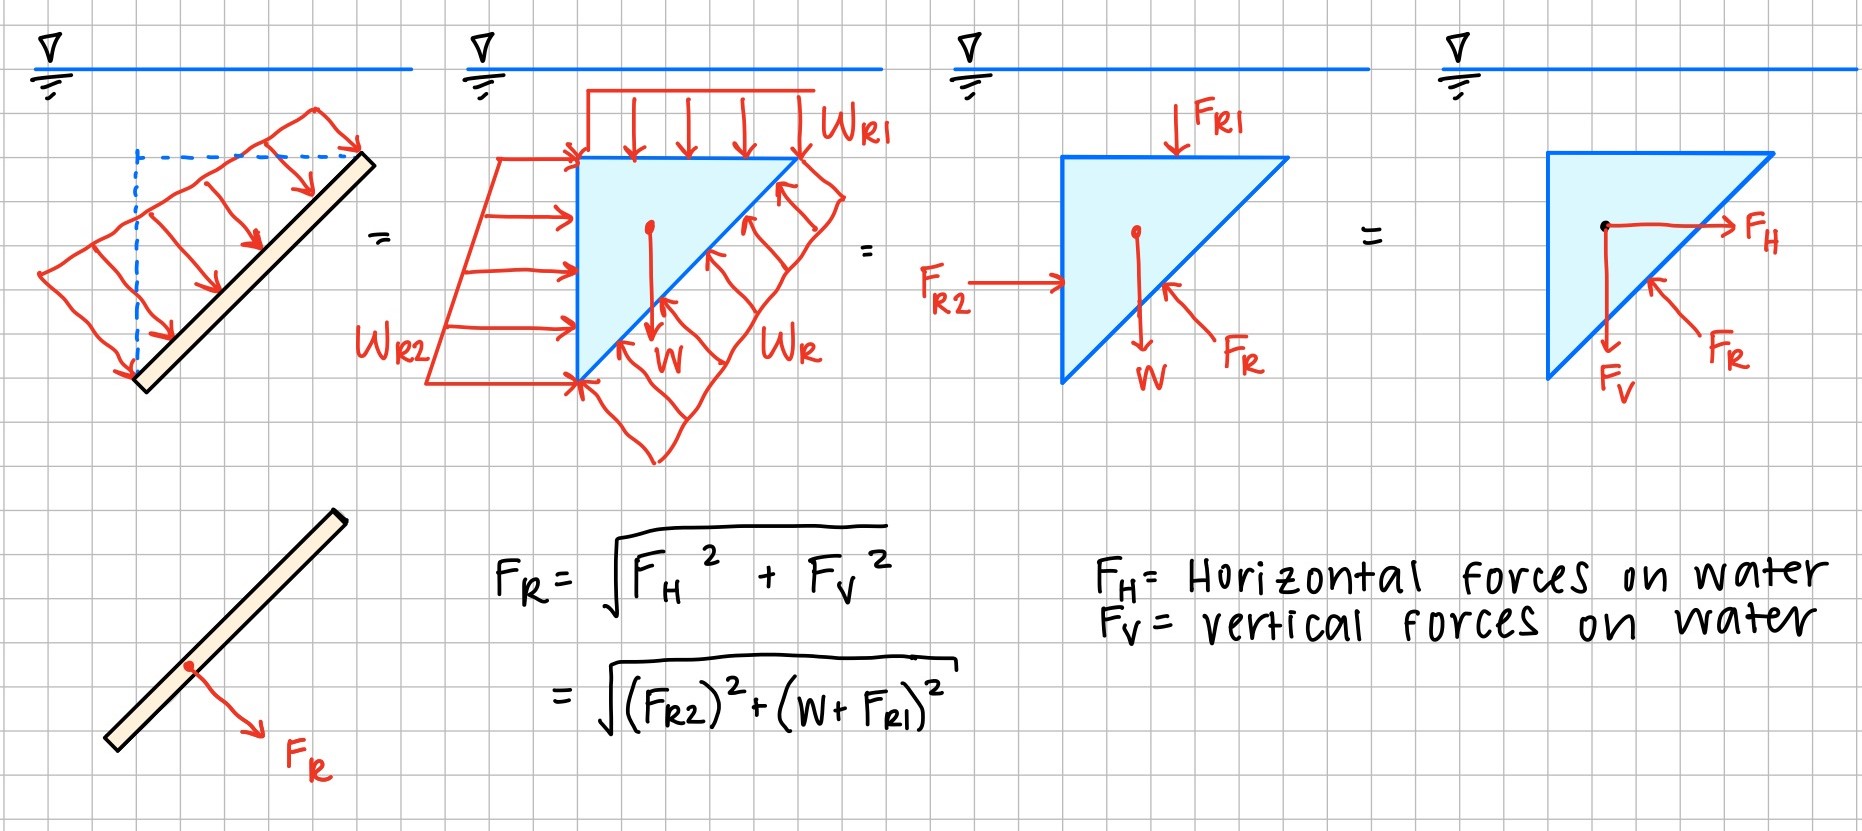 =
W_R1
W_R2
W
W_R
=
F_R1
F_R2
W
F_R
=
F_H
F_V
F_R
F_R
F_R = √(F_H² + F_V²)
= √((F_R2)² + (W + F_R1)²)
F_H = Horizontal forces on water
F_V = vertical forces on water